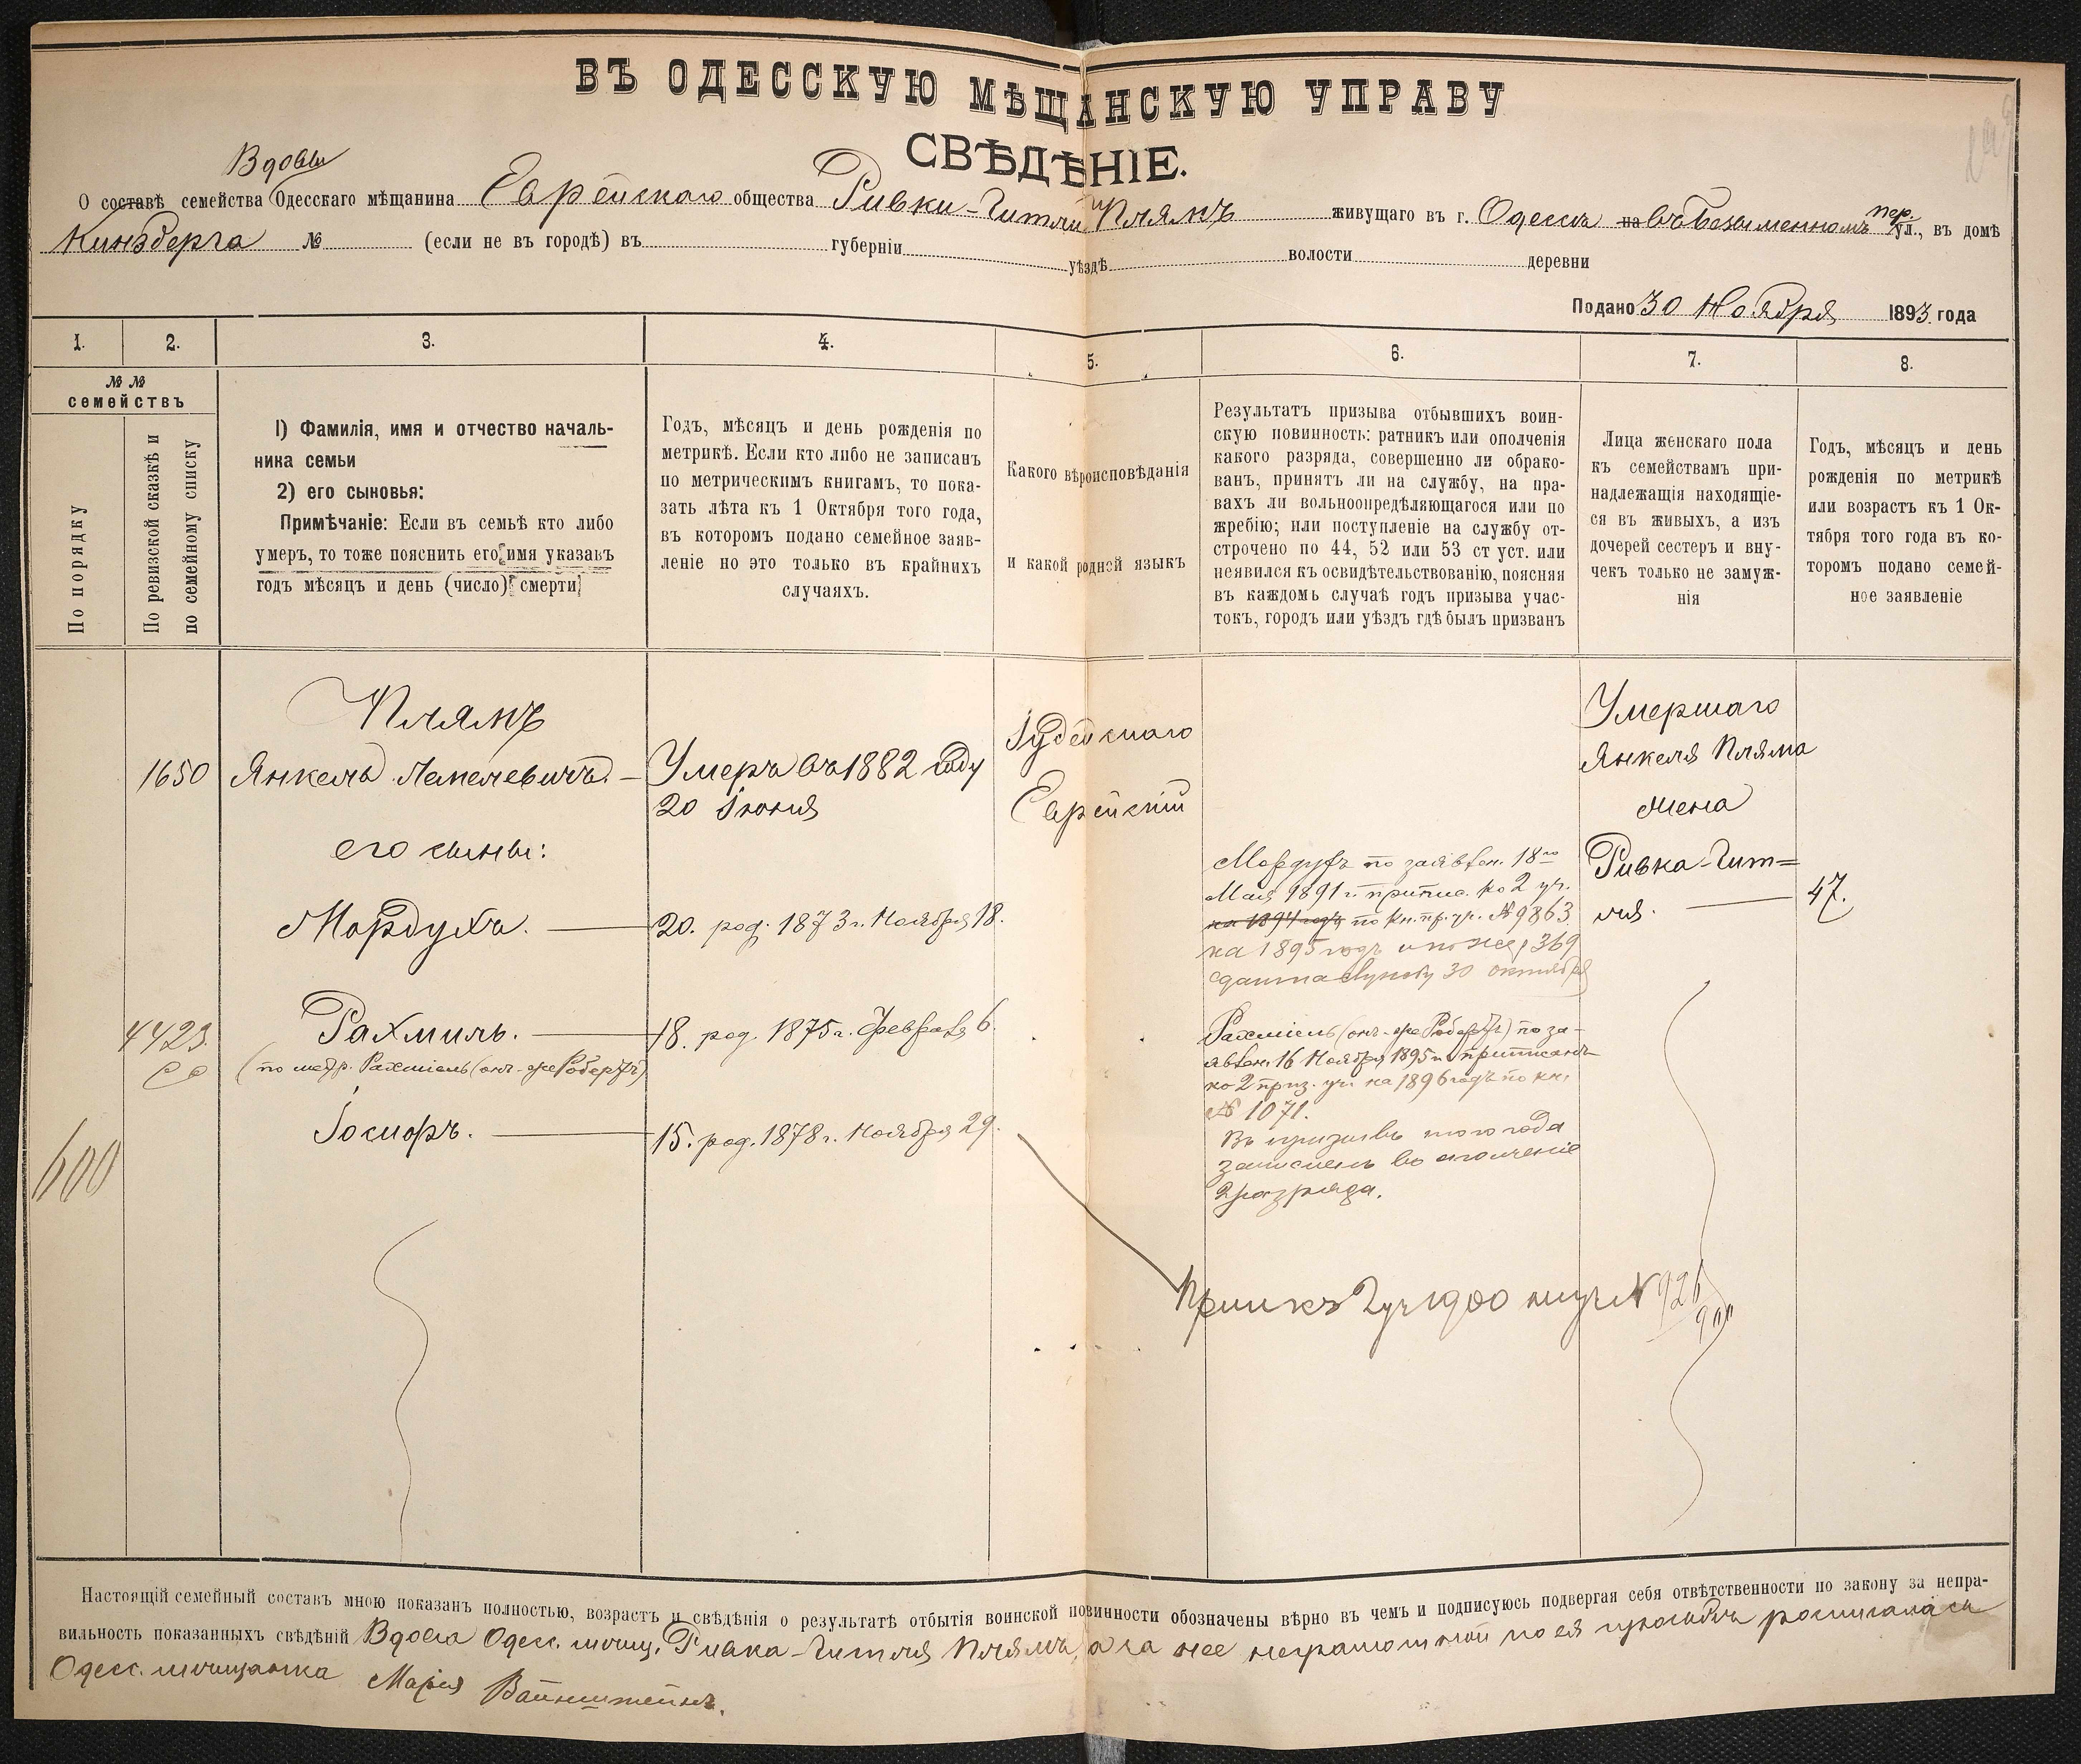 ВЪ ОДЕССКУЮ МѢЩАНСКУЮ УПРАВУ
СВѢДѢНІЕ.
Вдовы
О составѣ семейства Одесскаго мѣщанина Еврейскаго общества Ривки-Гитли Плямъ живущаго въ г. Одессѣ на въ Безыменномъ пер. ул., въ домѣ
Кинзберга № (если не въ городѣ) въ губерніи уѣздѣ волости деревни
Подано 30 Ноября 1893 года
1. 2. 3. 4. 5. 6. 7. 8.
№ №
семействъ
По порядку
По ревизской сказкѣ и
по семейному списку
1) Фамилія, имя и отчество началь-
ника семьи
2) его сыновья:
Примѣчаніе: Если въ семьѣ кто либо
умеръ, то тоже пояснить его имя указавъ
годъ мѣсяцъ и день (число) смерти
Годъ, мѣсяцъ и день рожденія по
метрикѣ. Если кто либо не записанъ
по метрическимъ книгамъ, то пока-
зать лѣта къ 1 Октября того года,
въ которомъ подано семейное заяв-
леніе но это только въ крайнихъ
случаяхъ.
Какого вѣроисповѣданія
и какой родной языкъ
Результатъ призыва отбывшихъ воин-
скую повинность: ратникъ или ополченія
какого разряда, совершенно ли обрако-
ванъ, принятъ ли на службу, на пра-
вахъ ли вольноопредѣляющагося или по
жребію; или поступленіе на службу от-
строчено по 44, 52 или 53 ст уст. или
неявился къ освидѣтельствованію, поясняя
въ каждомъ случаѣ годъ призыва учас-
токъ, городъ или уѣздъ гдѣ былъ призванъ
Лица женскаго пола
къ семействамъ при-
надлежащія находящіе-
ся въ живыхъ, а изъ
дочерей сестеръ и вну-
чекъ только не замуж-
нія
Годъ, мѣсяцъ и день
рожденія по метрикѣ
или возрастъ къ 1 Ок-
тября того года въ ко-
торомъ подано семей-
ное заявленіе
Плямъ
1650 Янкель Лемелевичъ. — Умеръ въ 1882 году
20 Іюня
Іудейскаго
Еврейскій
Умершаго
Янкеля Пляма
жена
Ривка-Гит=
ля. — 47.
его сыны:
Мордухъ. — 20. род. 1873 г. Ноября 18.
Мордухъ по заявлен. 18го
Мая 1891 г. припис. ко 2 уч.
на 1894 годъ по кн. пр. уч. № 9863
на 1895 годъ и по жер 369
сдан на службу 30 октября
4423. Рахмиль. — 18. род. 1875 г. Февраля 6.
(по метр. Рахміель (онъ-же Робертъ)
Рахміель (онъ-же Робертъ) по за-
явлен. 16 Ноября 1895 г. приписанъ
ко 2 приз. уч. на 1896 годъ по кн.
№ 1071.
Въ призывъ того года
зачисленъ въ ополченіе
2 разряда.
600
Іосифъ. — 15. род. 1878 г. Ноября 29.
Прип къ 2 уч 1900 № 926
Настоящій семейный составъ мною показанъ полностью, возрастъ и свѣдѣнія о результатѣ отбытія воинской повинности обозначены вѣрно въ чемъ и подписуюсь подвергая себя отвѣтственности по закону за непра-
вильность показанныхъ свѣдѣній Вдова Одес. мѣщ. Ривка-Гитля Плямъ, а за нее неграмотной по ея просьбѣ росписалась
Одес. мѣщанка Марія Вайнштейнъ.